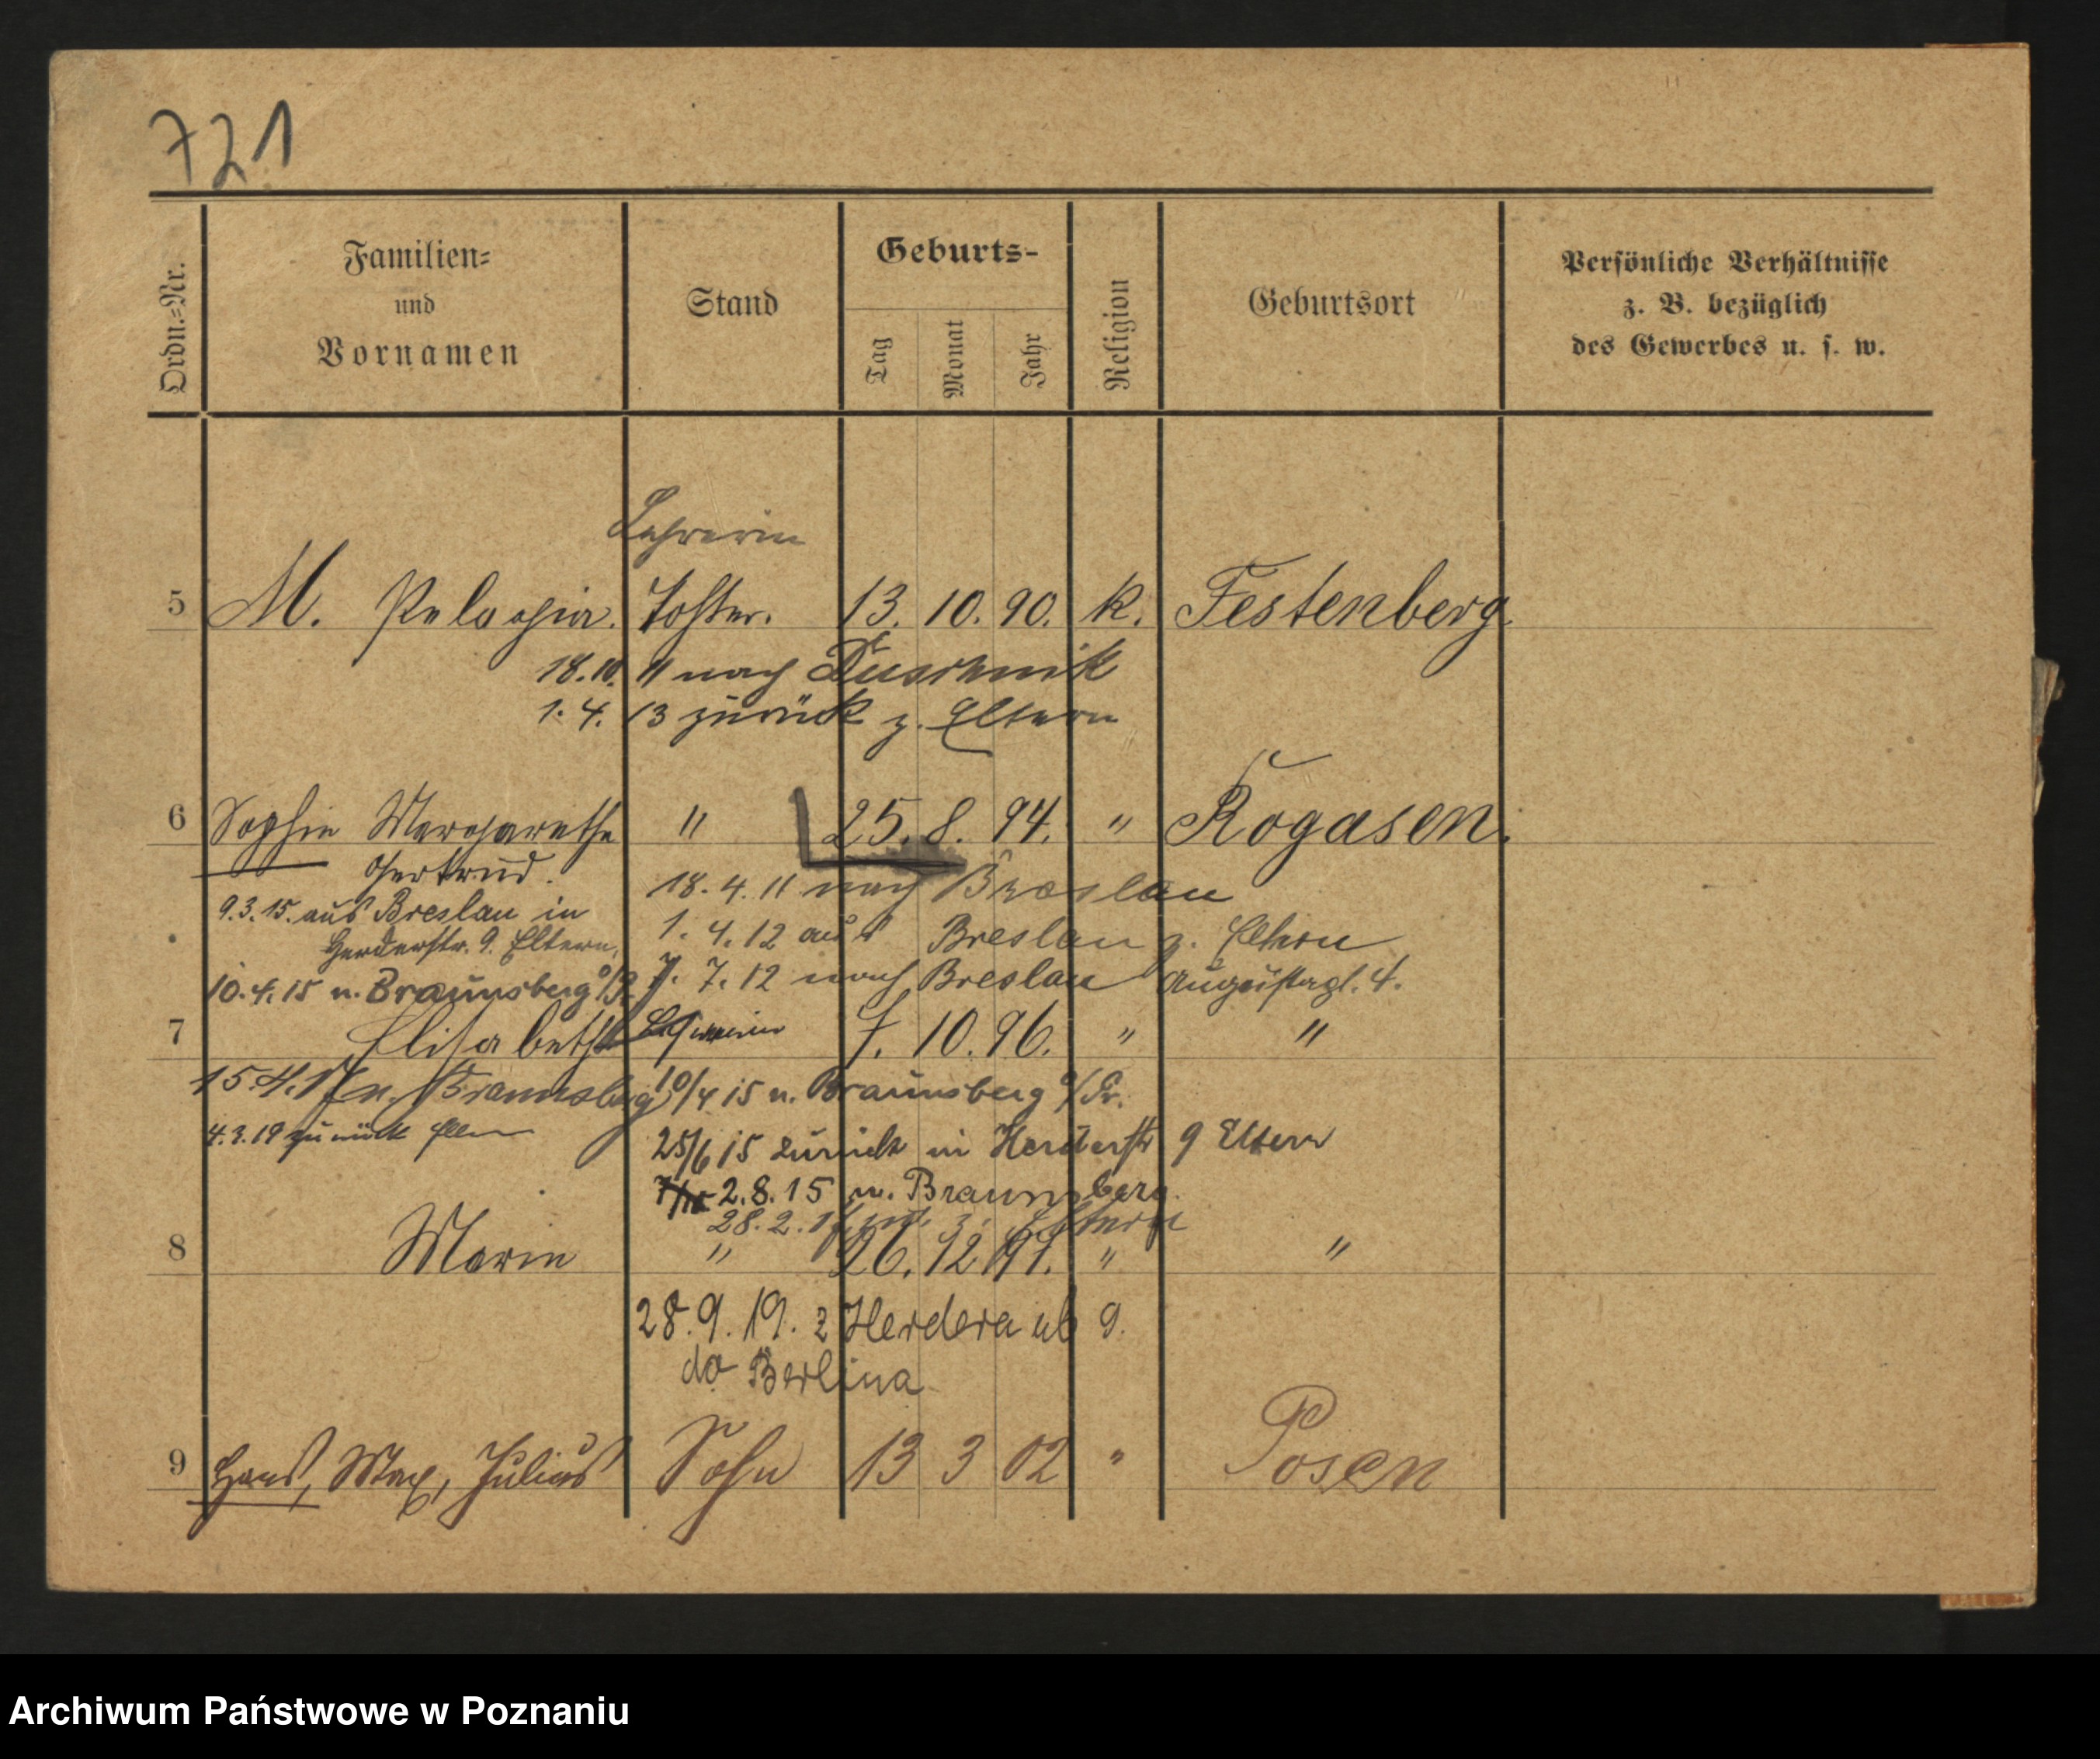 721
Ordn.=Nr.
Familien=
und
Vornamen
Stand
Geburts-
Tag
Monat
Jahr
Religion
Geburtsort
Persönliche Verhältnisse
z. B. bezüglich
des Gewerbes u. s. w.
Lehrerin
5 M. Pelagia. Tochter. 13. 10. 90. k. Festenberg.
18.10. 11 nach Duschnik
1. 4. 13 zurück z. Eltern
6 Sophie Margarethe " 25. 8. 94. " Rogasen.
Gertrud.
18. 4. 11 nach Breslau
9.3.15. aus Breslau in
1. 4. 12 aus Breslau z. Eltern
Herderstr. 9. Eltern.
7. 7. 12 nach Breslau Augustapl. 4.
10. 4. 15 n. Braunsberg
7 Elisabeth Lehrerin 7. 10. 96. " "
15. 4. 17 n. Braunsberg
10/4 15 n. Braunsberg o/Pr.
4. 3. 19 zurück Eltern
25/6 15 zurück in Herderstr 9 Eltern
2. 8. 15 n. Braunsberg.
28. 2. z. Eltern
8 Marie " 26. 12. 97. " "
28. 9. 19. z Herdera ul 9.
do Berlina
9 Hans, Max, Julius Sohn 13 3 02 " Posen
Archiwum Państwowe w Poznaniu